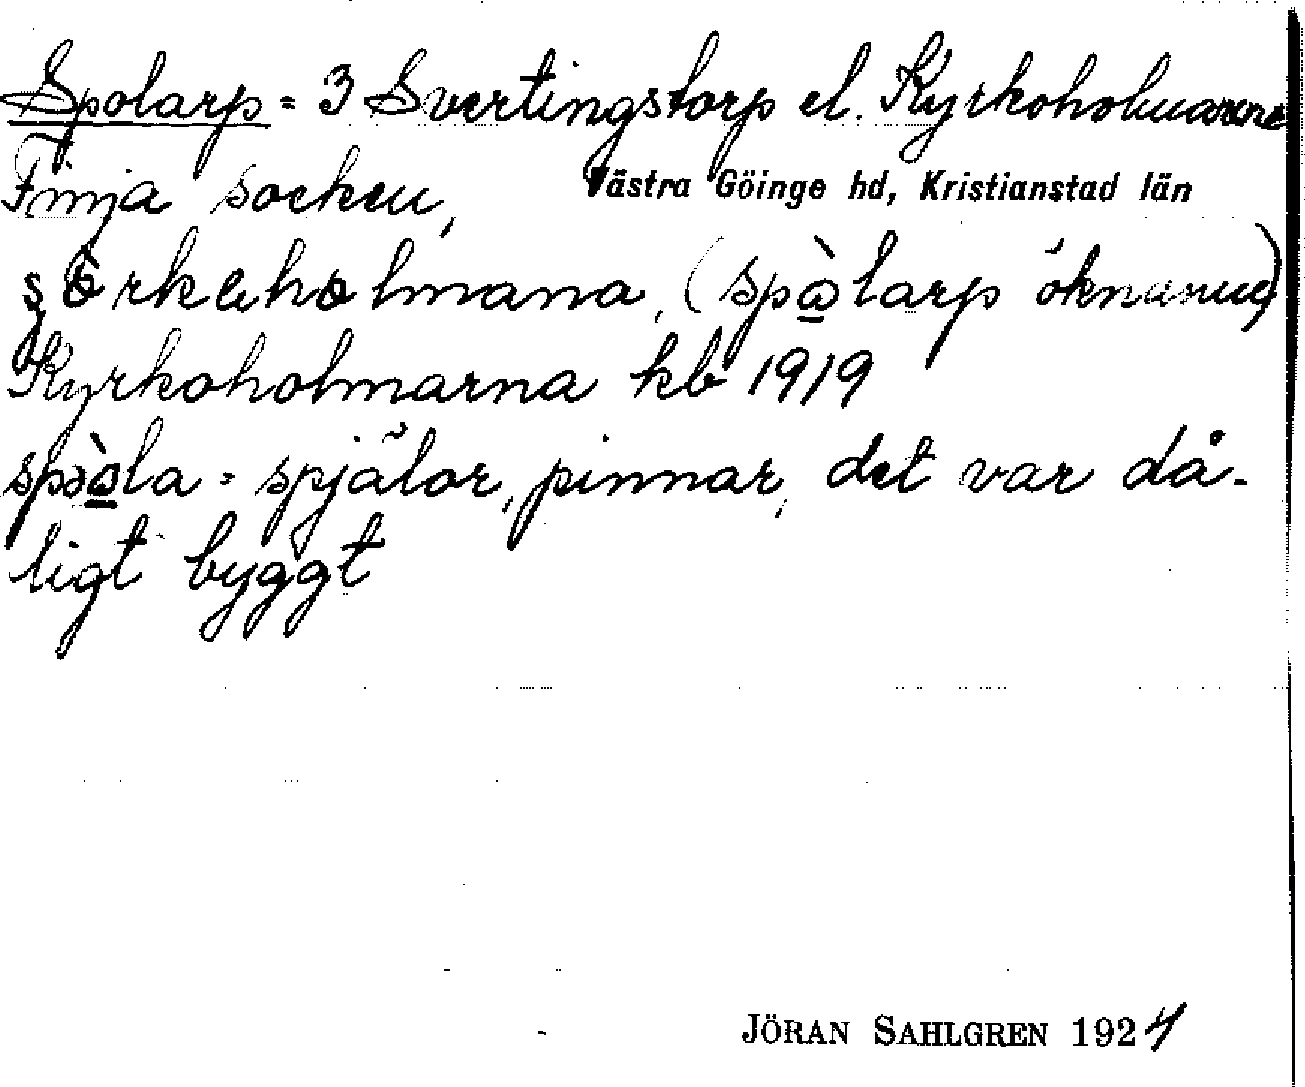 Spolarp = 3 Svertingstorp el. Kyrkoholmarne
Finja socken, Västra Göinge hd, Kristianstad län
şörkəholmana, (spòlarp öknamn)
Kyrkoholmarna kb 1919
spòla = spjälor, pinnar, det var då-
ligt byggt
JÖRAN SAHLGREN 1924